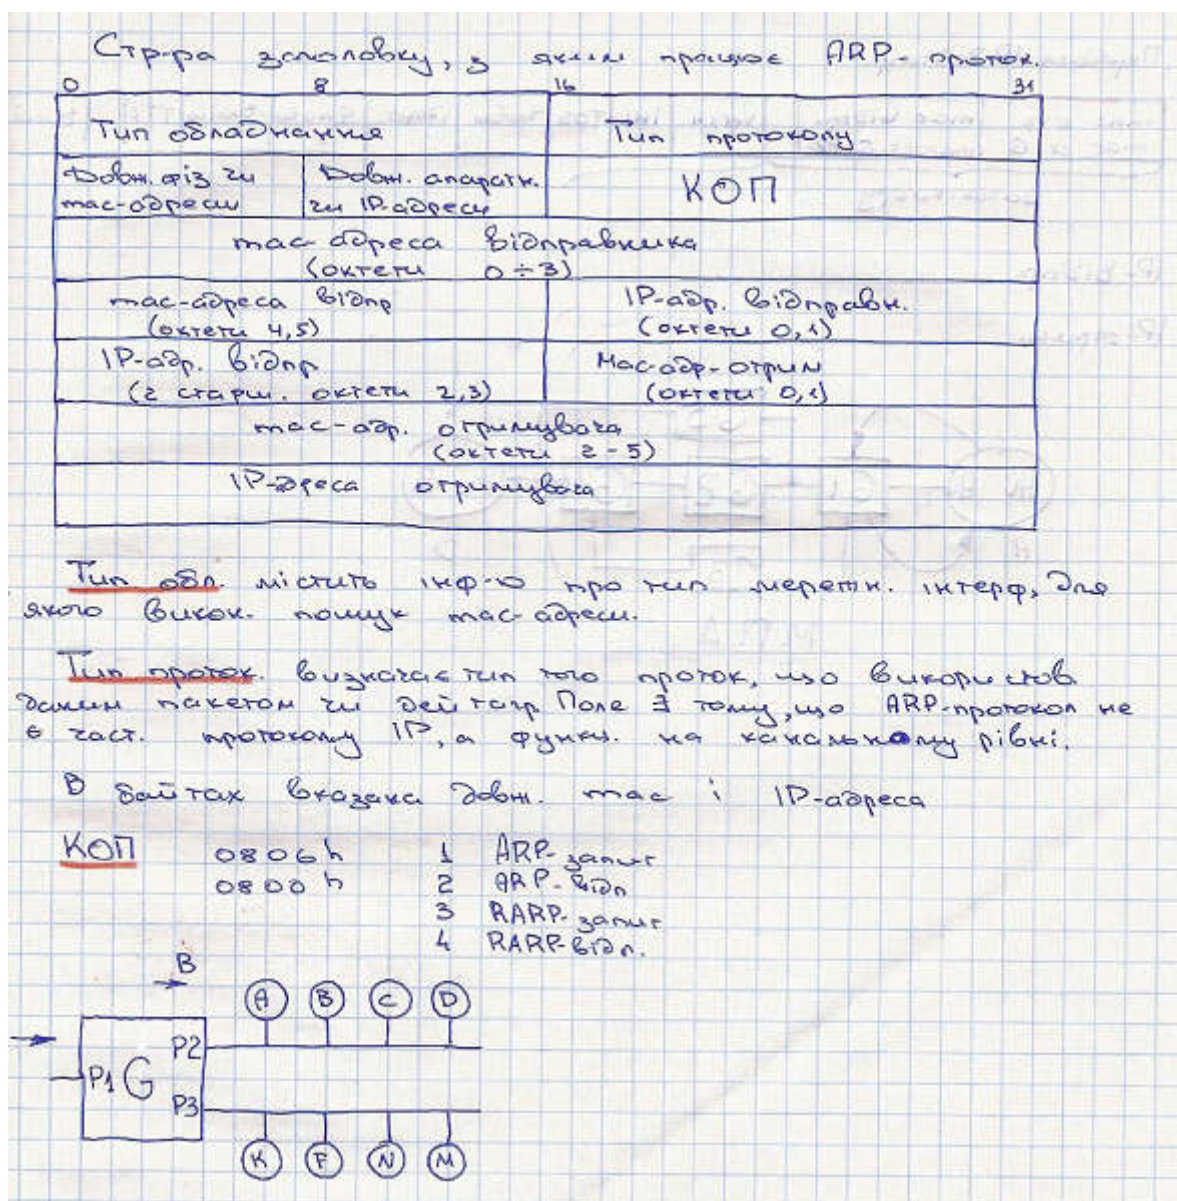 Стр-ра заголовку, з яким працює ARP-проток.
0 8 16 31
Тип обладнання Тип протоколу
Довж. фіз чи Довж. апаратн. КОП
mac-адреси чи IP-адреси
mac-адреса відправника
(октети 0÷3)
mac-адреса відпр IP-адр. відправн.
(октети 4,5) (октети 0,1)
IP-адр. відпр Мас-адр-отрим
(2 старш. октети 2,3) (октети 0,1)
mac-адр. отримувача
(октети 2-5)
IP-адреса отримувача
Тип обл. містить інф-ю про тип мережн. інтерф, для
якого викон. пошук mac-адреси.
Тип проток. визначає тип того проток, що використов
даним пакетом чи дейтагр. Поле ∃ тому, що ARP-протокол не
є част. протоколу IP, а функц. на канальному рівні.
В байтах вказана довж. mac і IP-адреса
КОП 0806h 1 ARP-запит
0800h 2 ARP-відп
3 RARP-запит
4 RARP-відп.
B
A B C D
P2
P1 G
P3
K F N M